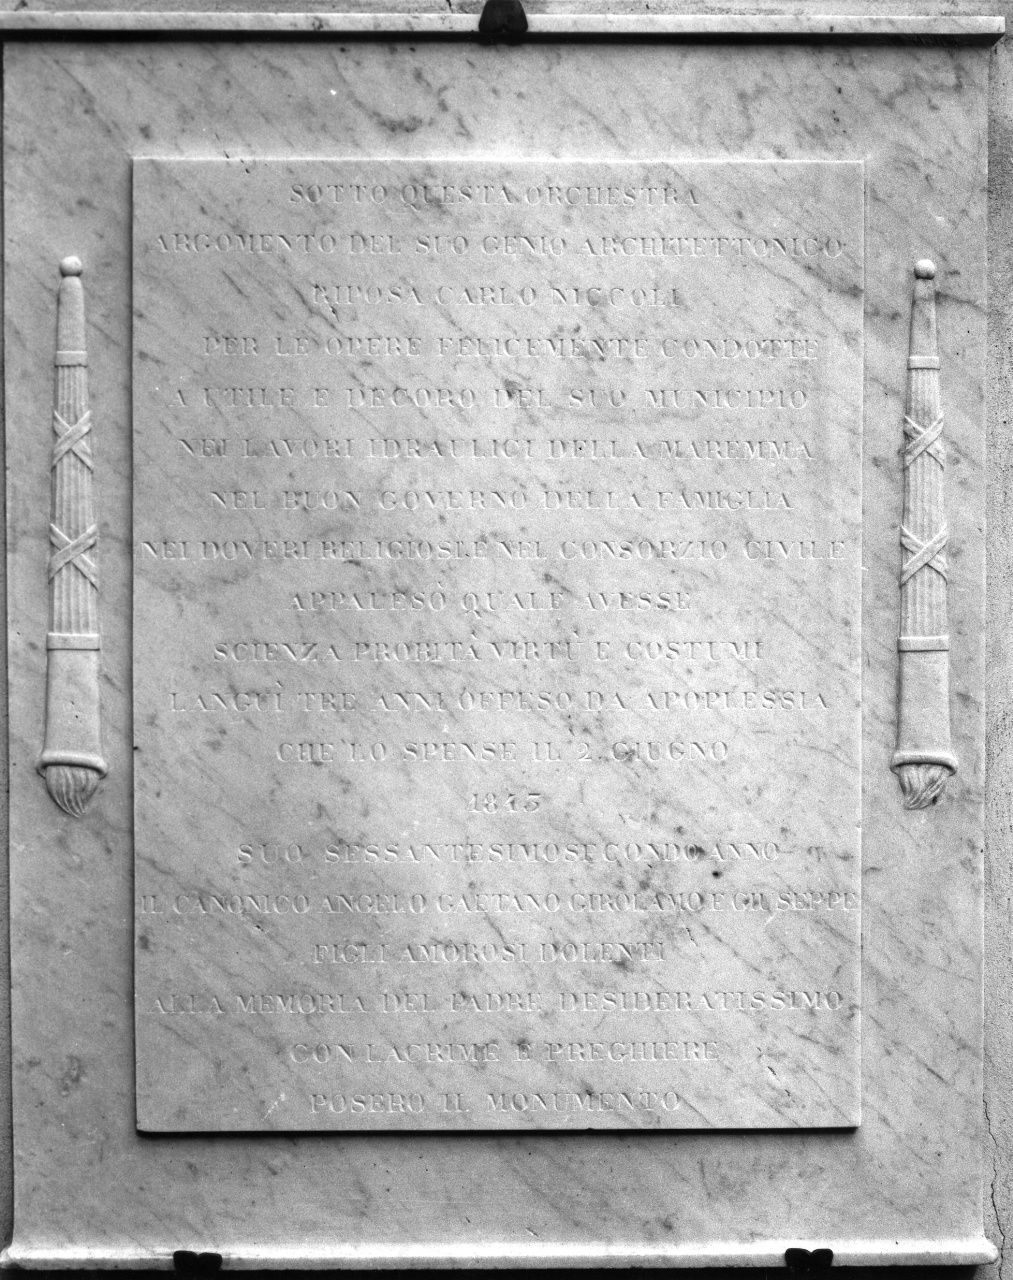 SOTTO QUESTA ORCHESTRA
ARGOMENTO DEL SUO GENIO ARCHITETTONICO
RIPOSA CARLO NICCOLI
PER LE OPERE FELICEMENTE CONDOTTE
A UTILE E DECORO DEL SUO MUNICIPIO
NEI LAVORI IDRAULICI DELLA MAREMMA
NEL BUON GOVERNO DELLA FAMIGLIA
NEI DOVERI RELIGIOSI E NEL CONSORZIO CIVILE
APPALESÒ QUALE AVESSE
SCIENZA PROBITÀ VIRTÙ E COSTUMI
LANGUÌ TRE ANNI OFFESO DA APOPLESSIA
CHE LO SPENSE IL 2 GIUGNO
1843
SUO SESSANTESIMOSECONDO ANNO
IL CANONICO ANGELO GAETANO GIROLAMO E GIUSEPPE
FIGLI AMOROSI DOLENTI
ALLA MEMORIA DEL PADRE DESIDERATISSIMO
CON LACRIME E PREGHIERE
POSERO IL MONUMENTO